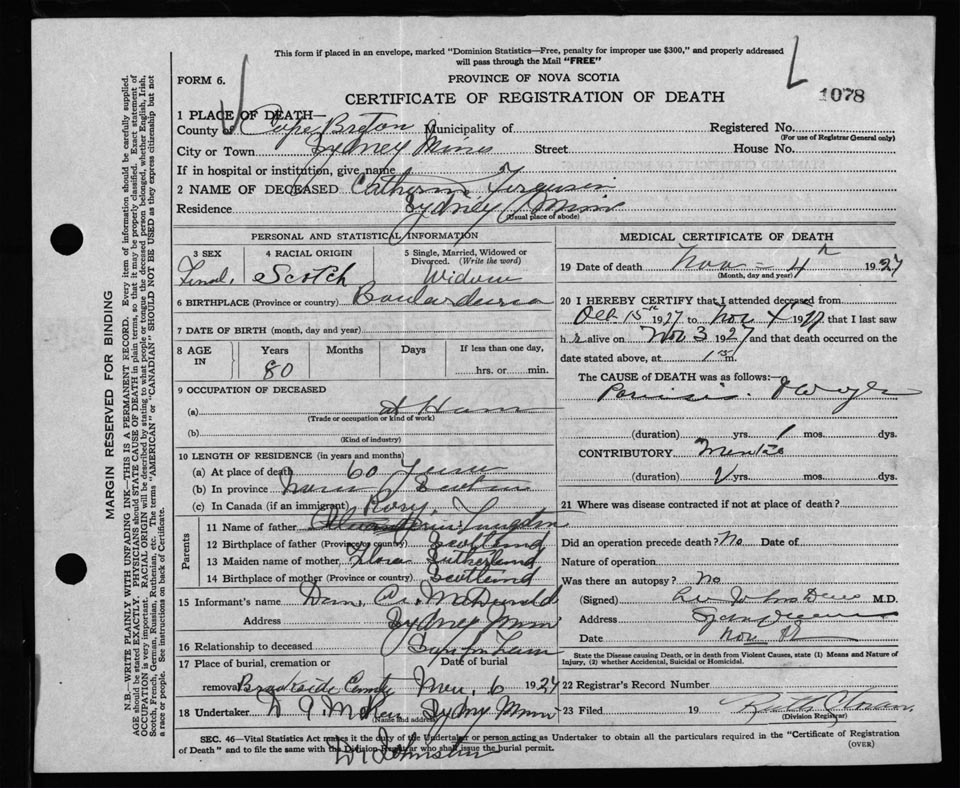 This form if placed in an envelope, marked "Dominion Statistics—Free, penalty for improper use $300," and properly addressed
will pass through the Mail "FREE"
FORM 6.
PROVINCE OF NOVA SCOTIA
CERTIFICATE OF REGISTRATION OF DEATH
1078
1 PLACE OF DEATH—
County of Cape Breton Municipality of Registered No.
(For use of Registrar General only)
City or Town Sydney Mines Street House No.
If in hospital or institution, give name
2 NAME OF DECEASED Catherine Ferguson
Residence Sydney Mines
(Usual place of abode)
PERSONAL AND STATISTICAL INFORMATION
3 SEX 4 RACIAL ORIGIN 5 Single, Married, Widowed or
Divorced. (Write the word)
Scotch Widow
6 BIRTHPLACE (Province or country)
7 DATE OF BIRTH (month, day and year)
8 AGE IN Years Months Days If less than one day,
80 hrs. or min.
9 OCCUPATION OF DECEASED
(a) At Home
(Trade or occupation or kind of work)
(b)
(Kind of industry)
10 LENGTH OF RESIDENCE (in years and months)
(a) At place of death 60 Years
(b) In province Nova Scotia
(c) In Canada (if an immigrant)
Parents
11 Name of father Rory
12 Birthplace of father (Province or country) Scotland
13 Maiden name of mother Flora Sutherland
14 Birthplace of mother (Province or country) Scotland
15 Informant's name McDonald
Address Sydney Mines
16 Relationship to deceased
17 Place of burial, cremation or Date of burial
removal Brookside Nov. 6 1927
18 Undertaker Sydney Mines
(Name and address)
MEDICAL CERTIFICATE OF DEATH
19 Date of death Nov - 4th 1927
(Month, day and year)
20 I HEREBY CERTIFY that I attended deceased from
Oct 15th 1927 to Nov 4 1927 that I last saw
h r alive on Nov 3 1927 and that death occurred on the
date stated above, at m.
The CAUSE OF DEATH was as follows:—
(duration) yrs. 1 mos. dys.
CONTRIBUTORY
(duration) yrs. mos. dys.
21 Where was disease contracted if not at place of death?
Did an operation precede death? No Date of
Nature of operation
Was there an autopsy? No
(Signed) M.D.
Address
Date Nov
State the Disease causing Death, or in death from Violent Causes, state (1) Means and Nature of
Injury, (2) whether Accidental, Suicidal or Homicidal.
22 Registrar's Record Number
23 Filed 19
(Division Registrar)
SEC. 46—Vital Statistics Act makes it the duty of the Undertaker or person acting as Undertaker to obtain all the particulars required in the "Certificate of Registration
of Death" and to file the same with the Division Registrar who shall issue the burial permit.
(OVER)
Johnston
MARGIN RESERVED FOR BINDING
N.B.—WRITE PLAINLY WITH UNFADING INK—THIS IS A PERMANENT RECORD. Every item of information should be carefully supplied.
AGE should be stated EXACTLY. PHYSICIANS should STATE CAUSE OF DEATH in plain terms, so that it may be properly classified. Exact statement of
OCCUPATION is very important. RACIAL ORIGIN will be described by stating to what people or tongue the deceased person belonged, whether English, Irish,
Scotch, French, German, Russian, Ruthenian, etc. The terms "AMERICAN" or "CANADIAN" SHOULD NOT BE USED as they express citizenship but not
a race or people. See instructions on back of Certificate.